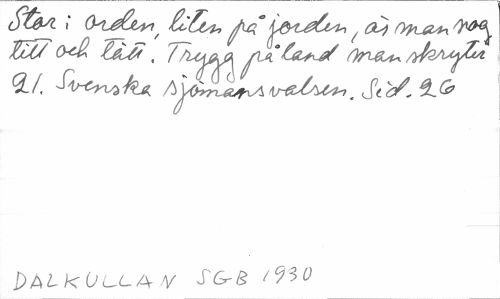 Stor i orden, liten på jorden, är man nog
titt och tätt. Trygg på land man skryter
21. Svenska sjömansvalsen. Sid. 26
DALKULLAN SGB 1930